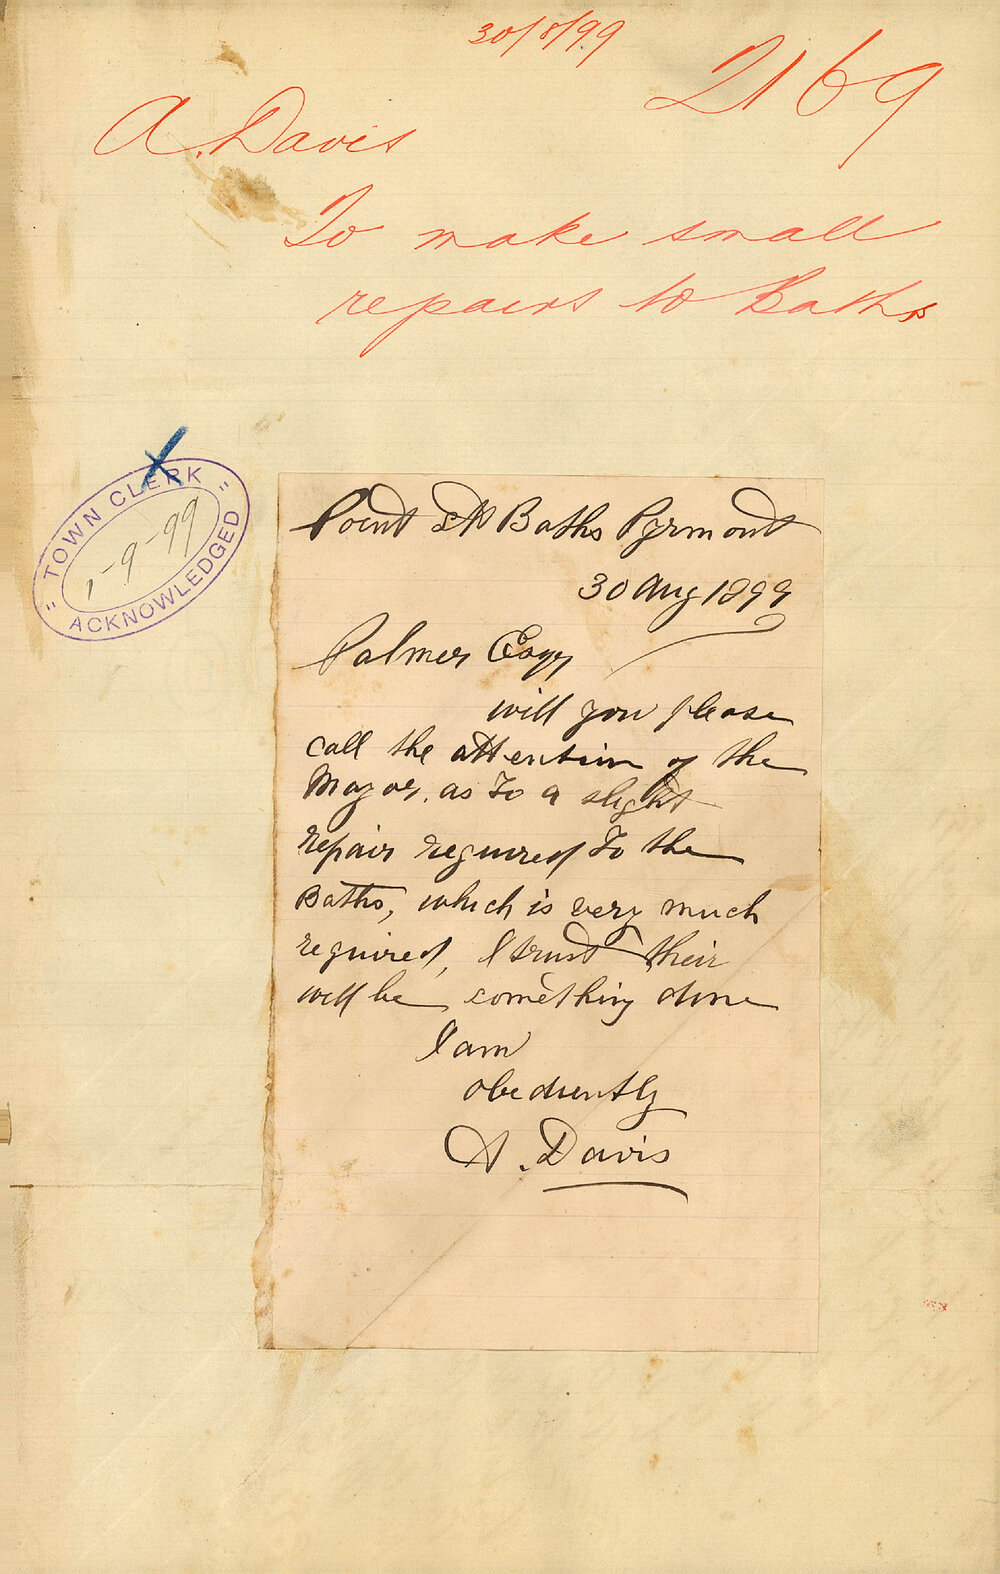 30/8/99
2169
A. Davis
To make small
repairs to Baths
"TOWN CLERK"
1-9-99
ACKNOWLEDGED
Point St Baths Pyrmont
30 Aug 1899
Palmer Esqr
will you please
call the attention of the
Mayor, as to a slight
repair required To the
Baths, which is very much
required, I trust their
will be something done
I am
obediently
A. Davis